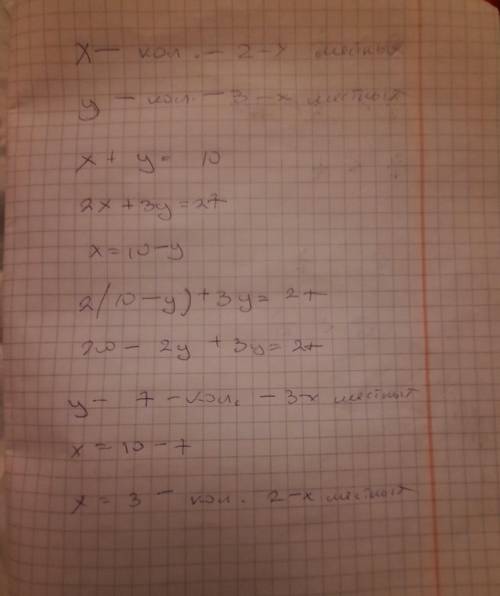 x — кол. — 2-х местных
y — кол. — 3-х местных
x + y = 10
2x + 3y = 27
x = 10 - y
2(10 - y) + 3y = 27
20 - 2y + 3y = 27
y - 7 - кол. - 3-х местных
x = 10 - 7
x = 3 - кол. 2-х местных